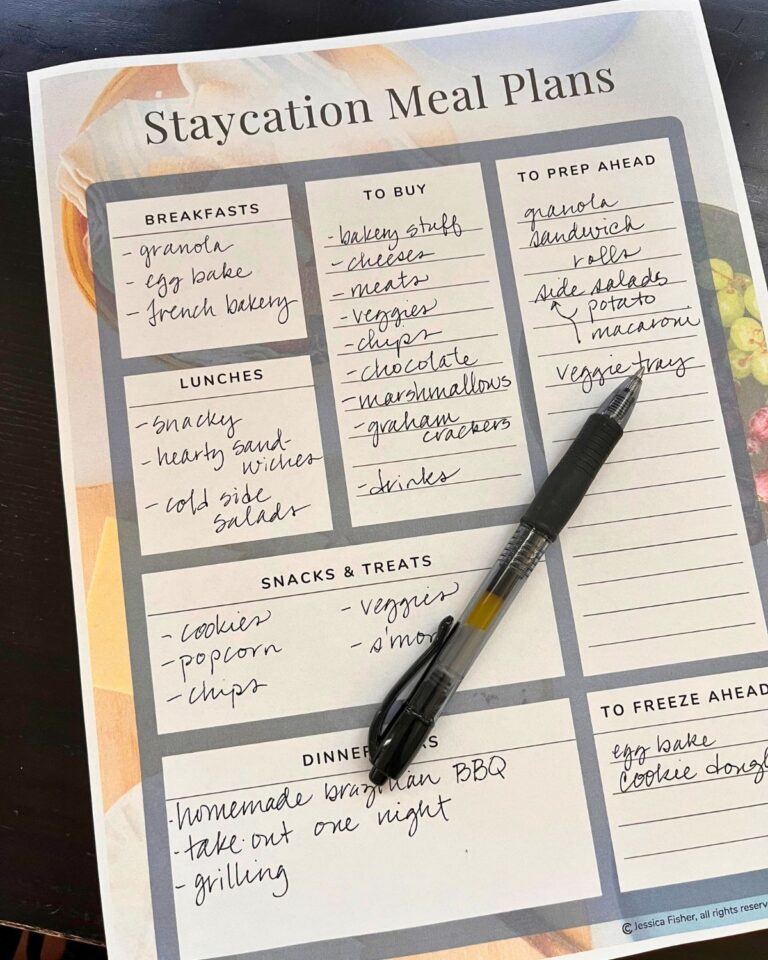 Staycation Meal Plans
BREAKFASTS
- granola
- egg bake
- french bakery
LUNCHES
- snacky
- hearty sand-
wiches
- cold side
salads
TO BUY
- bakery stuff
- cheeses
- meats
- veggies
- chips
- chocolate
- marshmallows
- graham
crackers
- drinks
TO PREP AHEAD
granola
sandwich
rolls
side salads
potato
macaroni
veggie tray
SNACKS & TREATS
- cookies
- popcorn
- chips
- veggies
- s'mor
DINNER
- homemade brazilian BBQ
- take-out one night
- grilling
TO FREEZE AHEAD
egg bake
cookie dough
© Jessica Fisher, all rights reserv